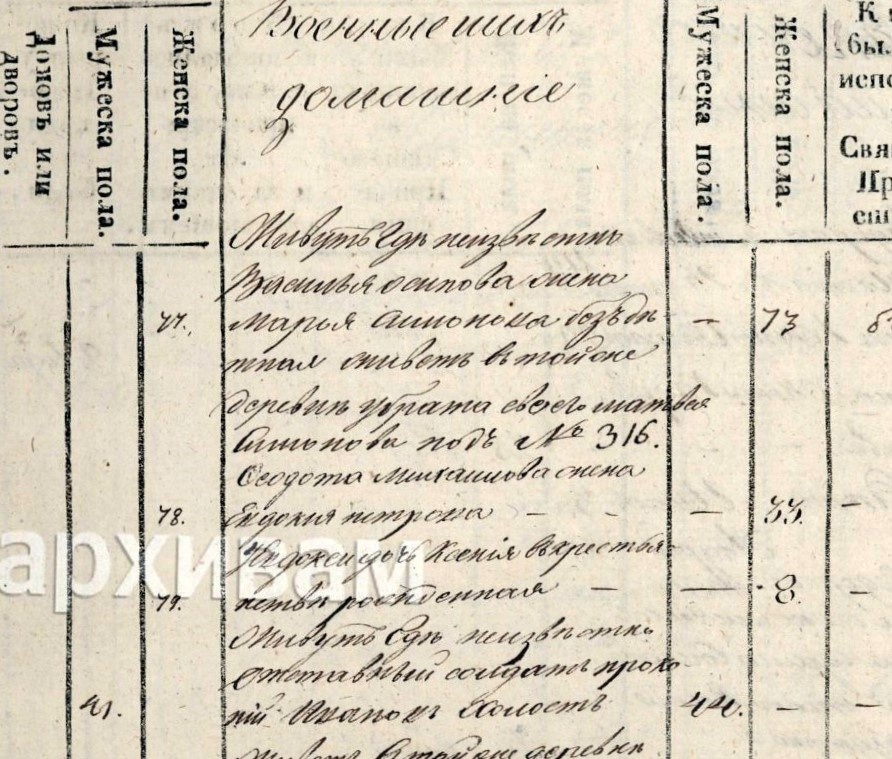 Домовъ или дворовъ.
Мужеска пола.
Женска пола.
Военные и ихъ
домашніе
Мужеска пола.
Женска пола.
К
бы.
испо
Свя
Пр
сш
Живутъ Гдѣ неизвѣстно
Василья осипова жена
77. Марья Симонова бездѣ- — 73
тная живетъ в той же
деревнѣ у брата своего матвея
Симонова подъ № 316.
Ѳеодота михаилова жена
78. Евдокия петрова — — — 33. —
Евдокеи дочь Ксенія въ крестья-
79. нствѣ рожденная — — 8. —
Живутъ Гдѣ неизвѣстно
отставный солдатъ проко
41. пій Холостъ 44. — —
Живетъ в той же деревнѣ
архивам